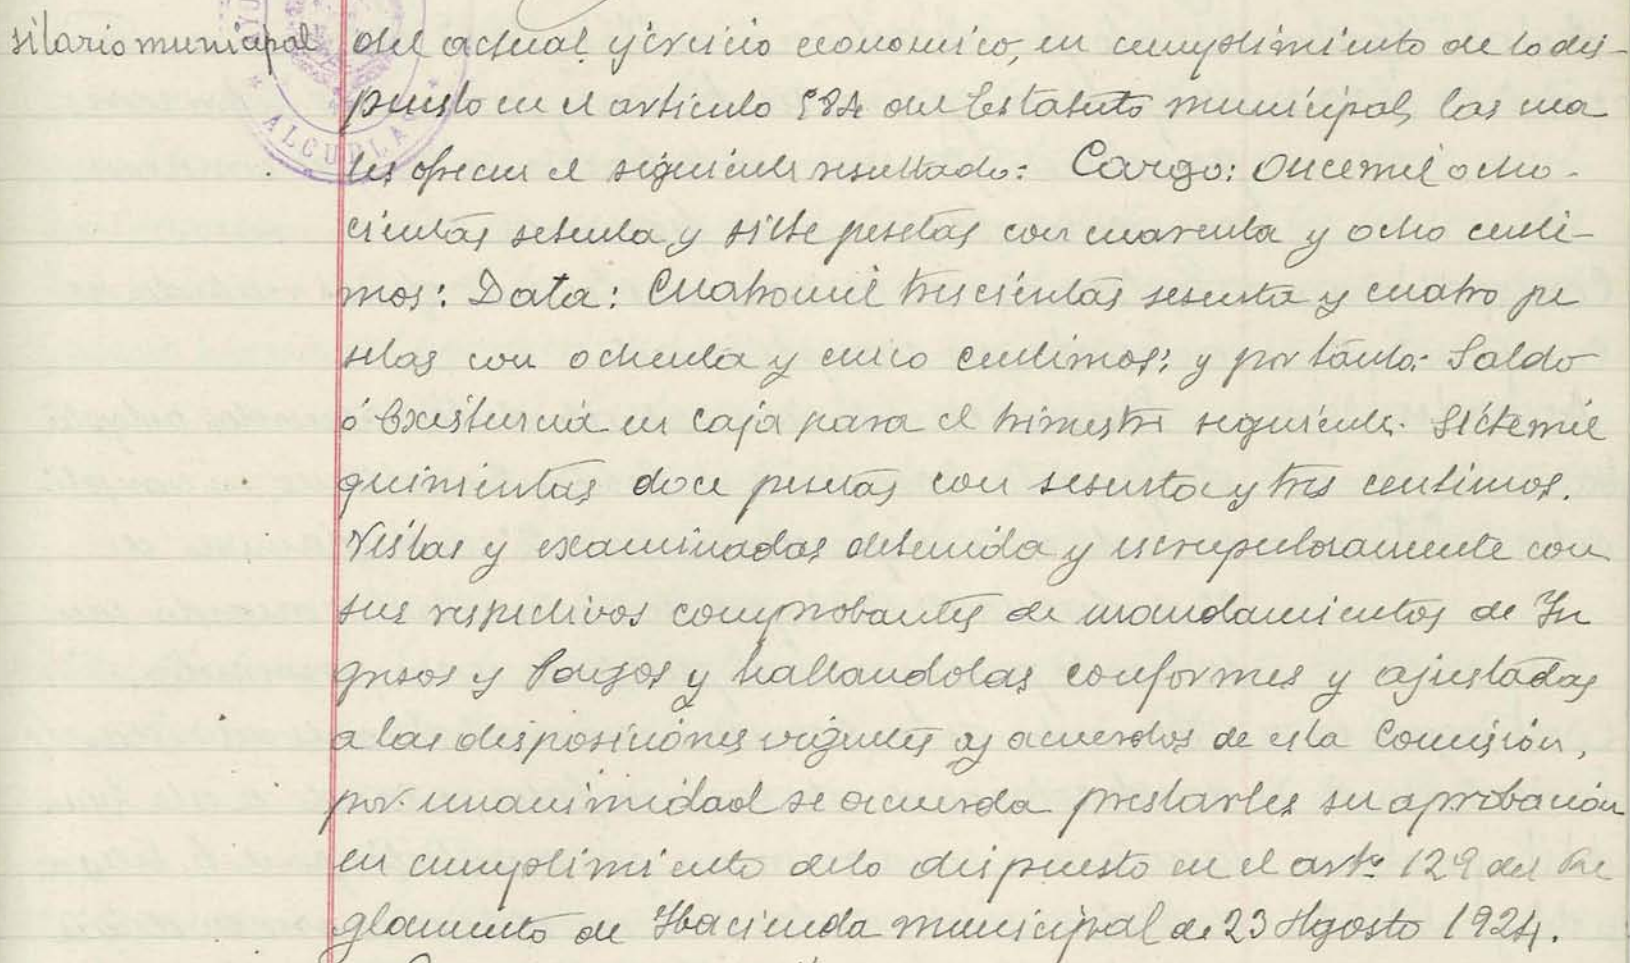 silario municipal
del actual ejercicio economico, en cumplimiento de lo dis-
puesto en el articulo 584 del Estatuto municipal, las cua
les ofrecen el siguiente resultado: Cargo: Once mil ocho-
cientas setenta y siete pesetas con cuarenta y ocho centi-
mos: Data: Cuatro mil trescientas sesenta y cuatro pe
setas con ochenta y cinco centimos; y por tanto: Saldo
ó Existencia en Caja para el trimestre siguiente. Siete mil
quinientas doce pesetas con sesenta y tres centimos.
Vistas y examinadas detenida y escrupulosamente con
sus respectivos comprobantes de mandamientos de In
gresos y Pagos y hallandolas conformes y ajustadas
a las disposiciones vigentes y acuerdos de esta Comisión,
por unanimidad se acuerda prestarles su aprobación
en cumplimiento de lo dispuesto en el artº 129 del Re
glamento de Hacienda municipal de 23 Agosto 1924.
ALCUBLA